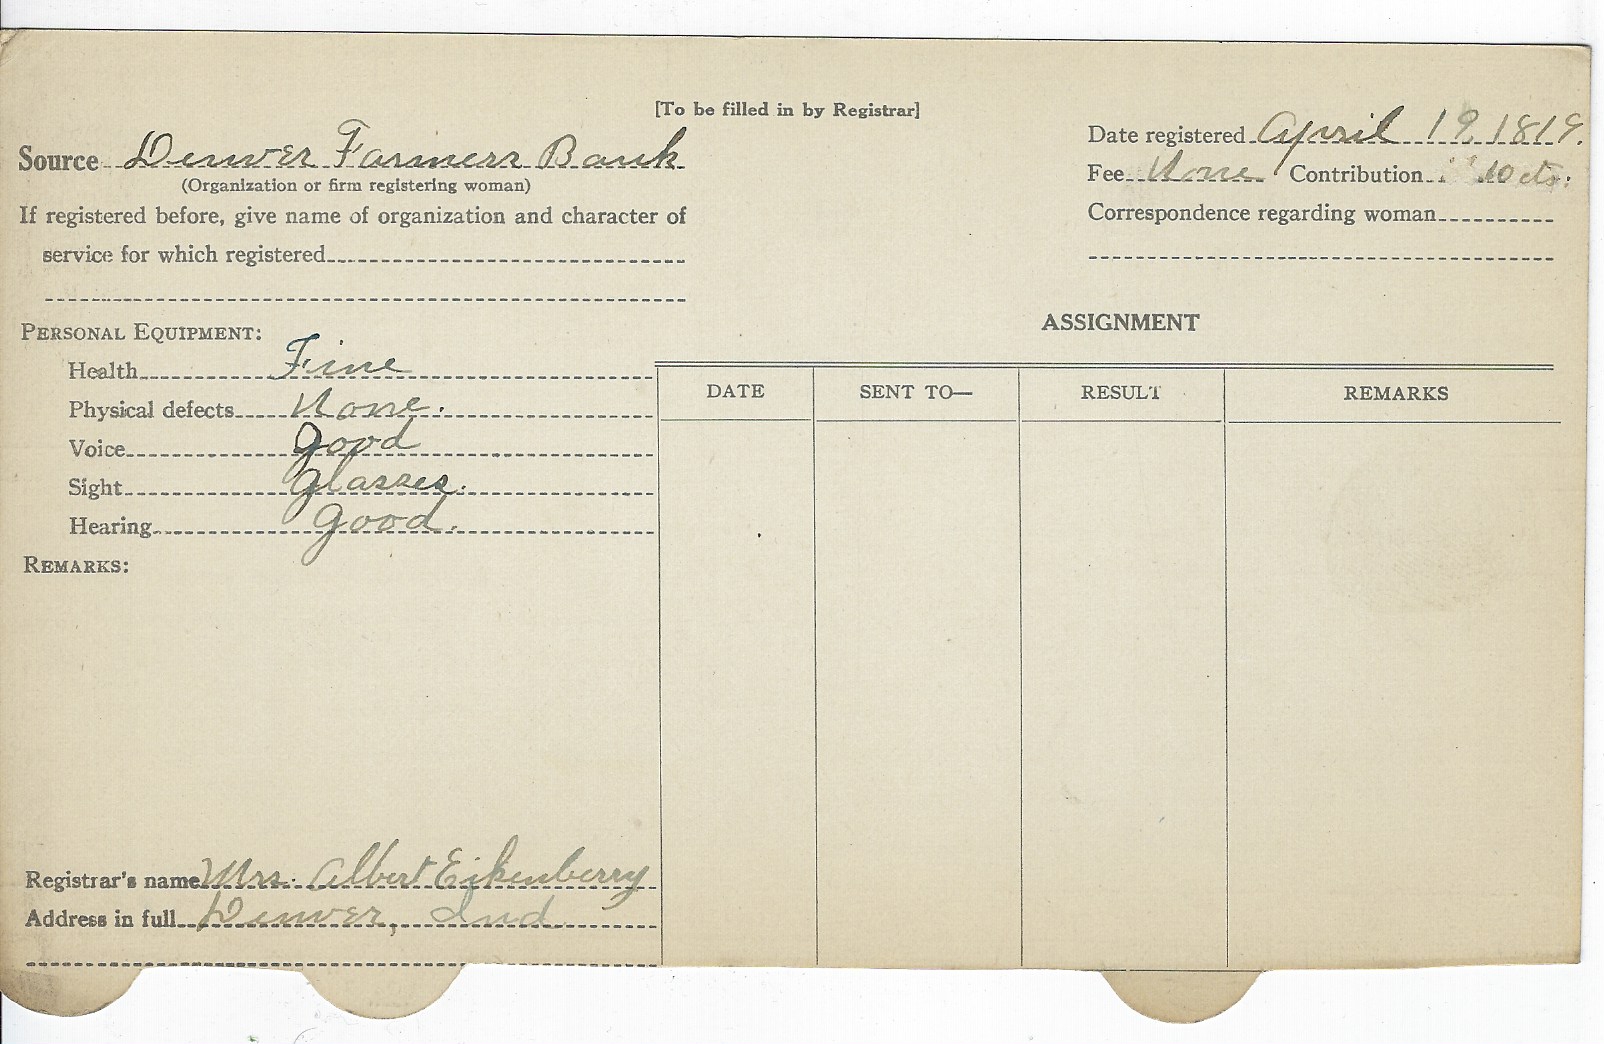 [To be filled in by Registrar]
Source Denver Farmers Bank
(Organization or firm registering woman)
If registered before, give name of organization and character of
service for which registered
Date registered April 19 1819.
Fee None Contribution 10 cts.
Correspondence regarding woman
PERSONAL EQUIPMENT:
Health Fine
Physical defects None.
Voice good
Sight Glasses.
Hearing good.
REMARKS:
Registrar's name Mrs. Albert Eikenberry
Address in full Denver, Ind
ASSIGNMENT
DATE SENT TO— RESULT REMARKS